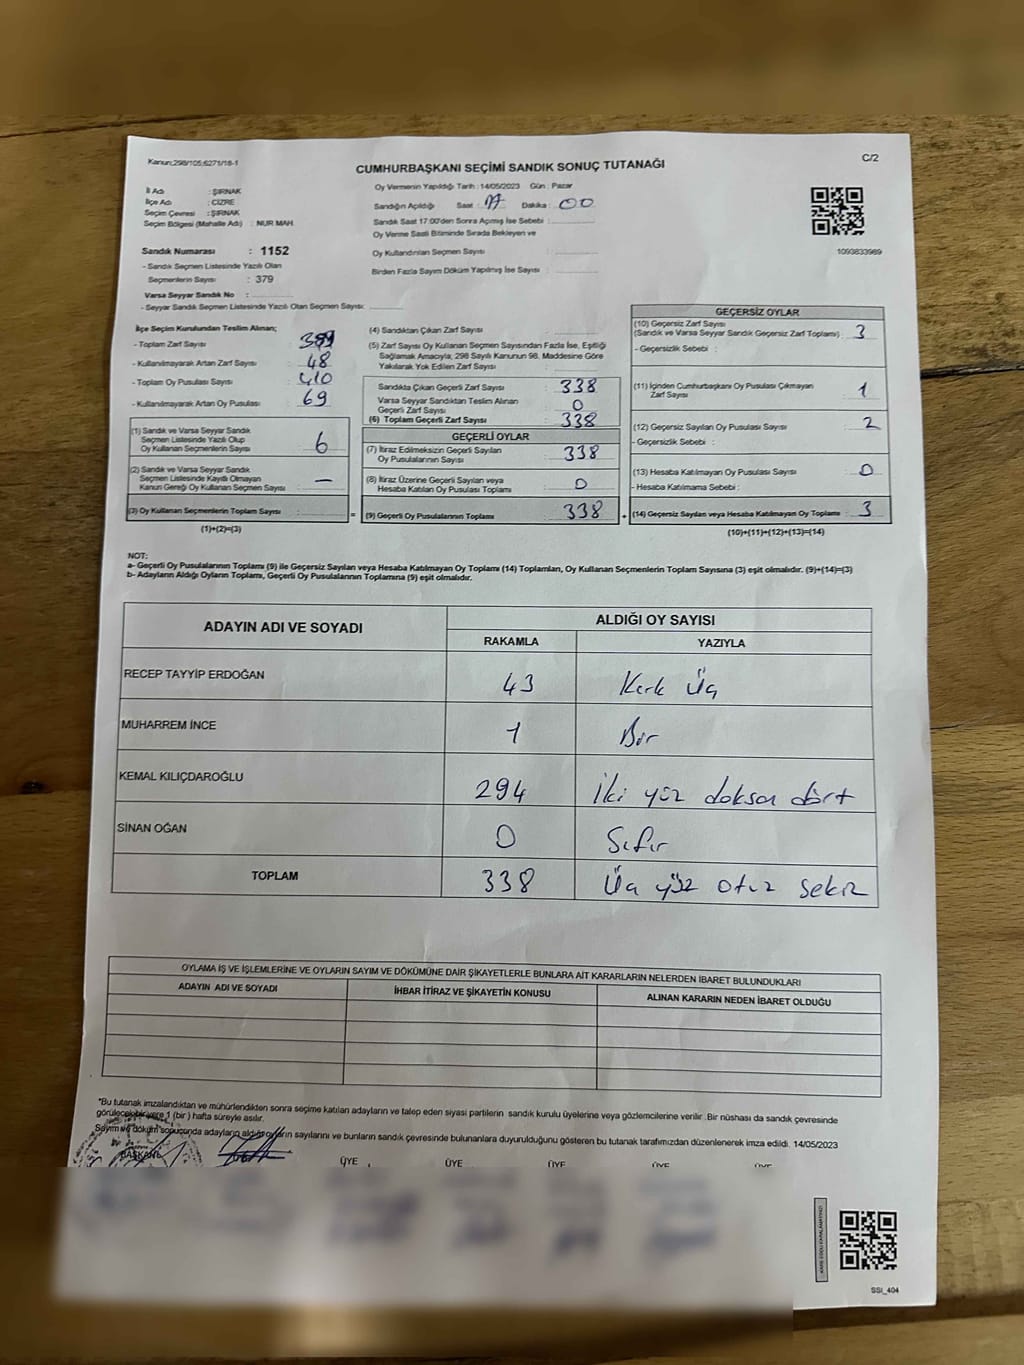 Kanun;298/105;6271/18-1
C/2
CUMHURBAŞKANI SEÇİMİ SANDIK SONUÇ TUTANAĞI
İl Adı : ŞIRNAK
İlçe Adı : CİZRE
Seçim Çevresi : ŞIRNAK
Seçim Bölgesi (Mahalle Adı) : NUR MAH.
Sandık Numarası : 1152
- Sandık Seçmen Listesinde Yazılı Olan
Seçmenlerin Sayısı : 379
Varsa Seyyar Sandık No :
- Seyyar Sandık Seçmen Listesinde Yazılı Olan Seçmen Sayısı:
Oy Vermenin Yapıldığı Tarih : 14/05/2023 Gün : Pazar
Sandığın Açıldığı Saat : 17 Dakika : 00
Sandık Saat 17:00'den Sonra Açılmış İse Sebebi :
Oy Verme Saati Bitiminde Sırada Bekleyen ve
Oy Kullandırılan Seçmen Sayısı :
Birden Fazla Sayım Döküm Yapılmış İse Sayısı :
1093833989
İlçe Seçim Kurulundan Teslim Alınan;
- Toplam Zarf Sayısı :
- Kullanılmayarak Artan Zarf Sayısı : 48
- Toplam Oy Pusulası Sayısı : 410
- Kullanılmayarak Artan Oy Pusulası : 69
(1) Sandık ve Varsa Seyyar Sandık
Seçmen Listesinde Yazılı Olup
Oy Kullanan Seçmenlerin Sayısı : 6
(2) Sandık ve Varsa Seyyar Sandık
Seçmen Listesinde Kayıtlı Olmayan
Kanun Gereği Oy Kullanan Seçmen Sayısı : —
(3) Oy Kullanan Seçmenlerin Toplam Sayısı : =
(1)+(2)=(3)
(4) Sandıktan Çıkan Zarf Sayısı :
(5) Zarf Sayısı Oy Kullanan Seçmen Sayısından Fazla İse, Eşitliği
Sağlamak Amacıyla, 298 Sayılı Kanunun 98. Maddesine Göre
Yakılarak Yok Edilen Zarf Sayısı :
Sandıkta Çıkan Geçerli Zarf Sayısı : 338
Varsa Seyyar Sandıktan Teslim Alınan
Geçerli Zarf Sayısı : 0
(6) Toplam Geçerli Zarf Sayısı : 338
GEÇERLİ OYLAR
(7) İtiraz Edilmeksizin Geçerli Sayılan
Oy Pusulalarının Sayısı : 338
(8) İtiraz Üzerine Geçerli Sayılan veya
Hesaba Katılan Oy Pusulası Toplamı : 0
(9) Geçerli Oy Pusulalarının Toplamı : 338 +
GEÇERSİZ OYLAR
(10) Geçersiz Zarf Sayısı
(Sandık ve Varsa Seyyar Sandık Geçersiz Zarf Toplamı) : 3
- Geçersizlik Sebebi :
(11) İçinden Cumhurbaşkanı Oy Pusulası Çıkmayan
Zarf Sayısı : 1
(12) Geçersiz Sayılan Oy Pusulası Sayısı : 2
- Geçersizlik Sebebi :
(13) Hesaba Katılmayan Oy Pusulası Sayısı : 0
- Hesaba Katılmama Sebebi :
(14) Geçersiz Sayılan veya Hesaba Katılmayan Oy Toplamı : 3
(10)+(11)+(12)+(13)=(14)
NOT:
a- Geçerli Oy Pusulalarının Toplamı (9) ile Geçersiz Sayılan veya Hesaba Katılmayan Oy Toplamı (14) Toplamları, Oy Kullanan Seçmenlerin Toplam Sayısına (3) eşit olmalıdır. (9)+(14)=(3)
b- Adayların Aldığı Oyların Toplamı, Geçerli Oy Pusulalarının Toplamına (9) eşit olmalıdır.
ADAYIN ADI VE SOYADI ALDIĞI OY SAYISI
RAKAMLA YAZIYLA
RECEP TAYYİP ERDOĞAN 43 Kırk Üç
MUHARREM İNCE 1 Bir
KEMAL KILIÇDAROĞLU 294 İki yüz doksan dört
SİNAN OĞAN 0 Sıfır
TOPLAM 338 Üç yüz otuz sekiz
OYLAMA İŞ VE İŞLEMLERİNE VE OYLARIN SAYIM VE DÖKÜMÜNE DAİR ŞİKAYETLERLE BUNLARA AİT KARARLARIN NELERDEN İBARET BULUNDUKLARI
ADAYIN ADI VE SOYADI İHBAR İTİRAZ VE ŞİKAYETİN KONUSU ALINAN KARARIN NEDEN İBARET OLDUĞU
*Bu tutanak imzalandıktan ve mühürlendikten sonra seçime katılan adayların ve talep eden siyasi partilerin sandık kurulu üyelerine veya gözlemcilerine verilir. Bir nüshası da sandık çevresinde
görülecek bir yere 1 (bir ) hafta süreyle asılır.
Sayım ve döküm sonucunda adayların aldığı oyların sayılarını ve bunların sandık çevresinde bulunanlara duyurulduğunu gösteren bu tutanak tarafımızdan düzenlenerek imza edildi. 14/05/2023
BAŞKAN ÜYE ÜYE ÜYE ÜYE ÜYE
SSI_404